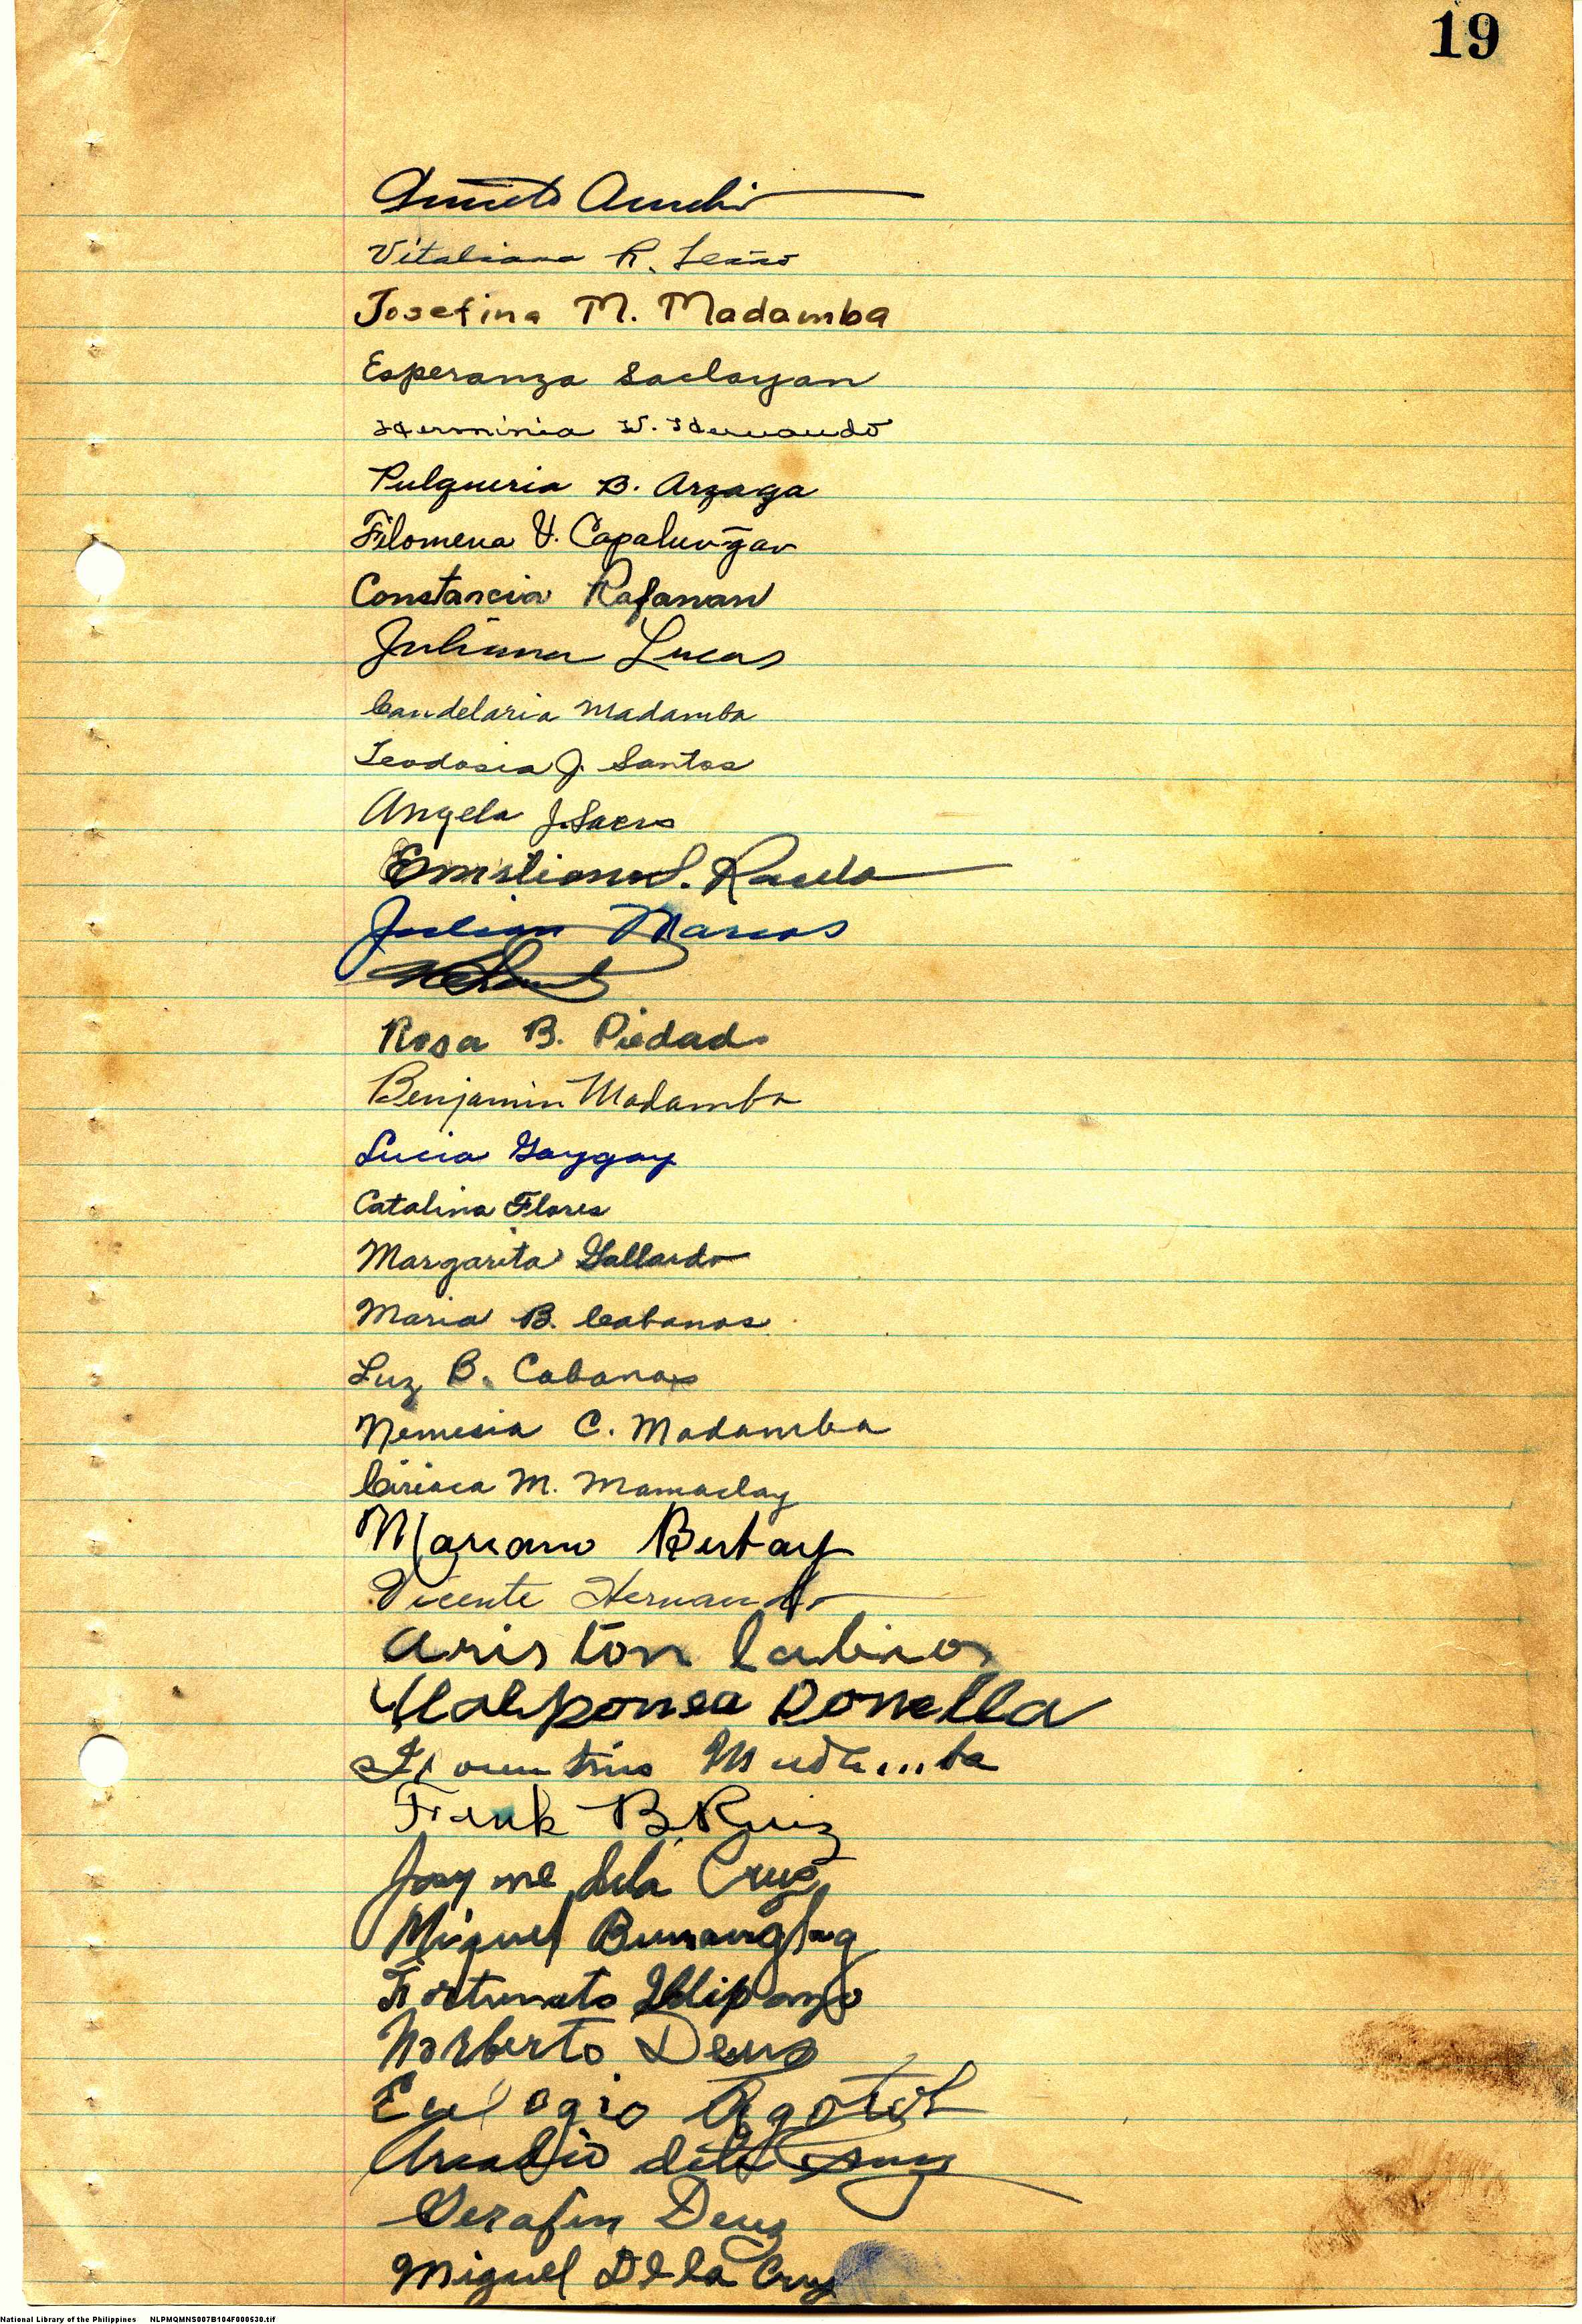 19
Vitaliana R.
Josefina M. Madamba
Esperanza Saclayan
Herminia W. Hernando
Pulqueria B. Arzaga
Filomena V. Capalungan
Constancia Rafanan
Juliana Lucas
Candelaria Madamba
Teodosia J. Santos
Angela J.
Emiliano S.
Julian Marcos
Rosa B. Piedad
Benjamin Madamba
Lucia Gaygay
Catalina Flores
Margarita Gallardo
Maria B. Cabanos
Luz B. Cabanos
Nemesia C. Madamba
Ciriaca M. Mamaclay
Mariano Butay
Vicente Hernando
Ariston
Donella
Frank B. Ruiz
Jayme dela Cruz
Miguel
Fortunato
Norberto
Eulogio
Arcadio dela Cruz
Serafin
Miguel Dela Cruz
National Library of the Philippines NLPMQMNS007B104F000530.tif